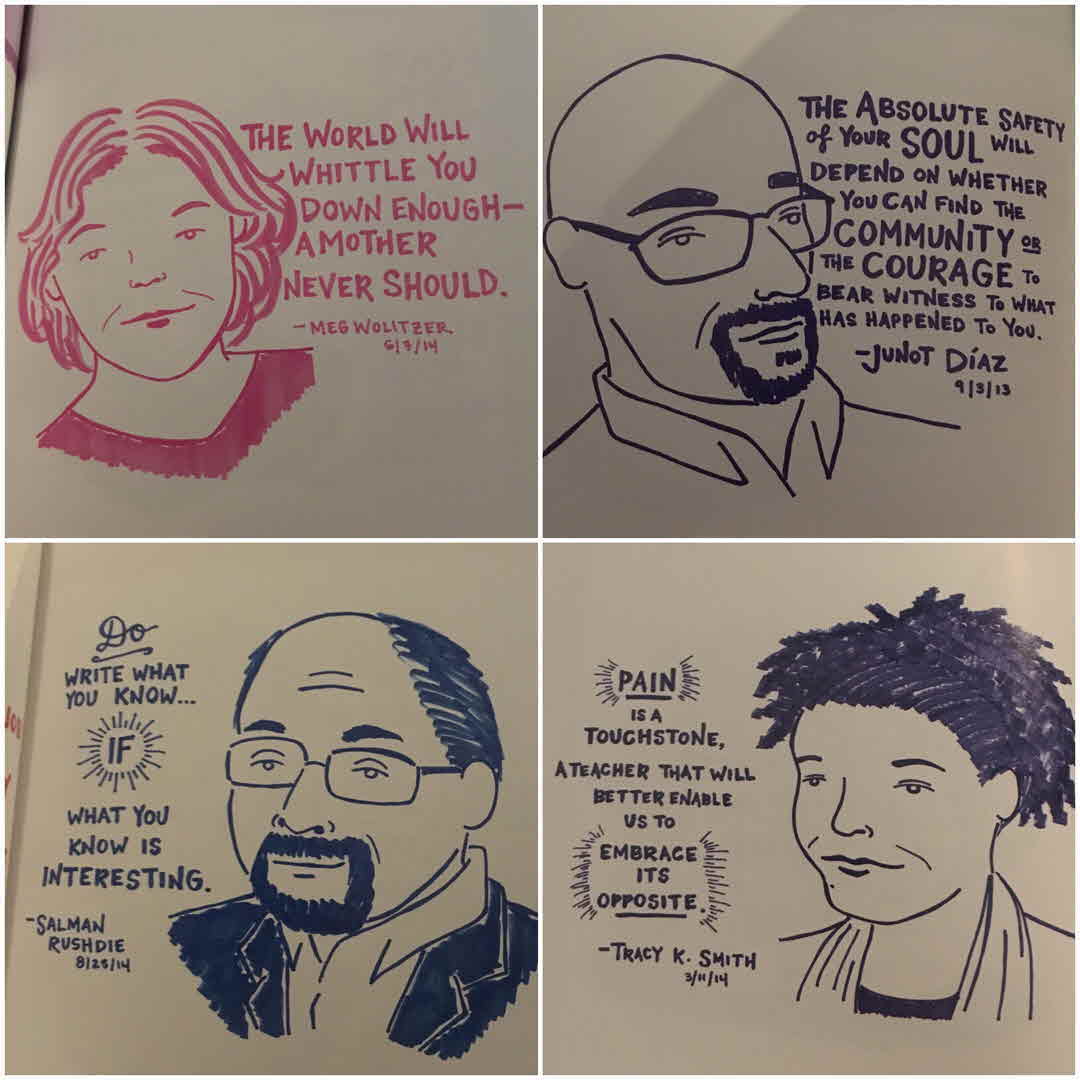 THE WORLD WILL
WHITTLE YOU
DOWN ENOUGH—
A MOTHER
NEVER SHOULD.
—MEG WOLITZER
5/7/14
THE ABSOLUTE SAFETY
of YOUR SOUL WILL
DEPEND ON WHETHER
YOU CAN FIND THE
COMMUNITY OR
THE COURAGE TO
BEAR WITNESS TO WHAT
HAS HAPPENED TO YOU.
—JUNOT DÍAZ
9/3/13
Do
WRITE WHAT
YOU KNOW...
IF
WHAT YOU
KNOW IS
INTERESTING.
—SALMAN
RUSHDIE
8/25/14
PAIN
IS A
TOUCHSTONE,
A TEACHER THAT WILL
BETTER ENABLE
US TO
EMBRACE
ITS
OPPOSITE.
—TRACY K. SMITH
3/11/14